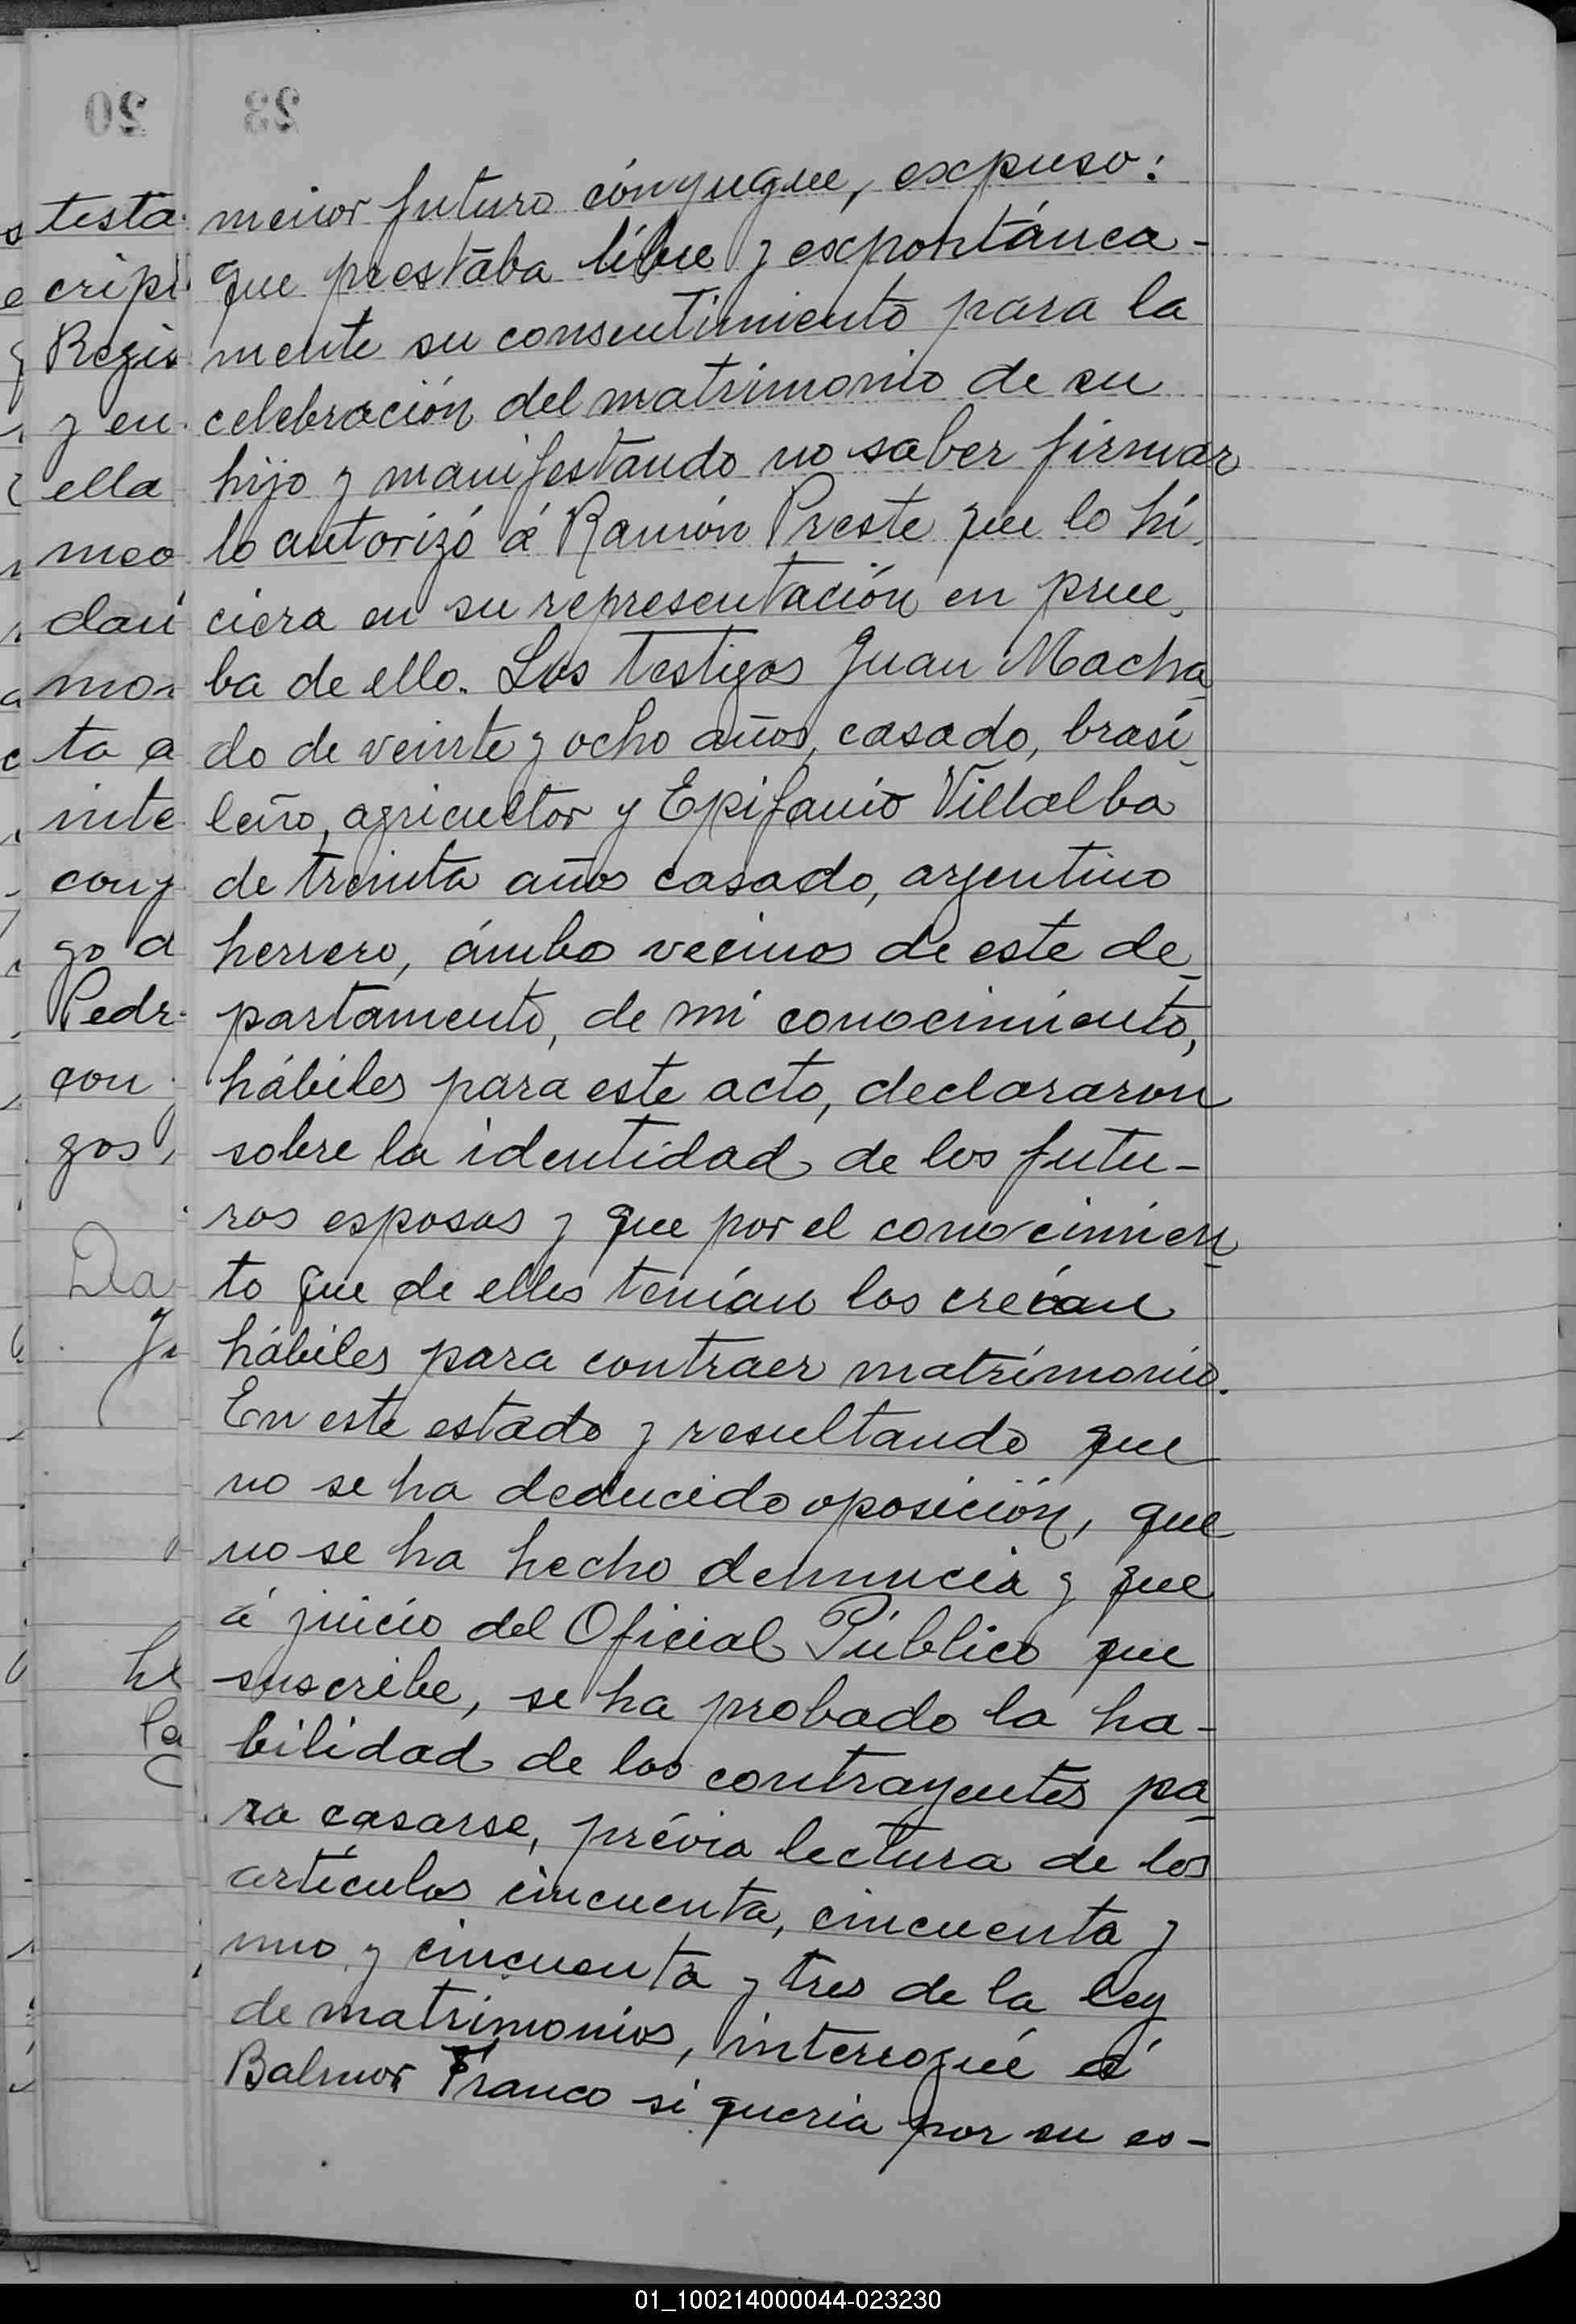 20
23
testa
cripi
Regis
y en
ella
meo
dan
mo
ta a
inte
cony
go d
Pedr
con
gos,
Da
he
la
menor futuro cónyugue, expuso:
que prestaba libre y expontánea-
mente su consentimiento para la
celebración del matrimonio de su
hijo y manifestando no saber firmar
lo autorizó á Ramón Preste que lo hi
ciera en su representación en prue
ba de ello. Los testigos Juan Macha
do de veinte y ocho años, casado, brasi
leño, agricultor y Epifanio Villalba
de treinta años casado, argentino
herrero, ámbos vecinos de este de
partamento, de mi conocimiento,
hábiles para este acto, declararon
sobre la identidad de los futu-
ros esposos y que por el conocimien
to que de ellos tenían los creían
hábiles para contraer matrimonio.
En este estado y resultando que
no se ha deducido oposición, que
no se ha hecho denuncia y que
á juicio del Oficial Público que
suscribe, se ha probado la ha-
bilidad de los contrayentes pa
ra casarse, prévia lectura de los
artículos cincuenta, cincuenta y
uno y cincuenta y tres de la ley
de matrimonios, interrogué á
Balmor Franco si queria por su es-
01_100214000044-023230